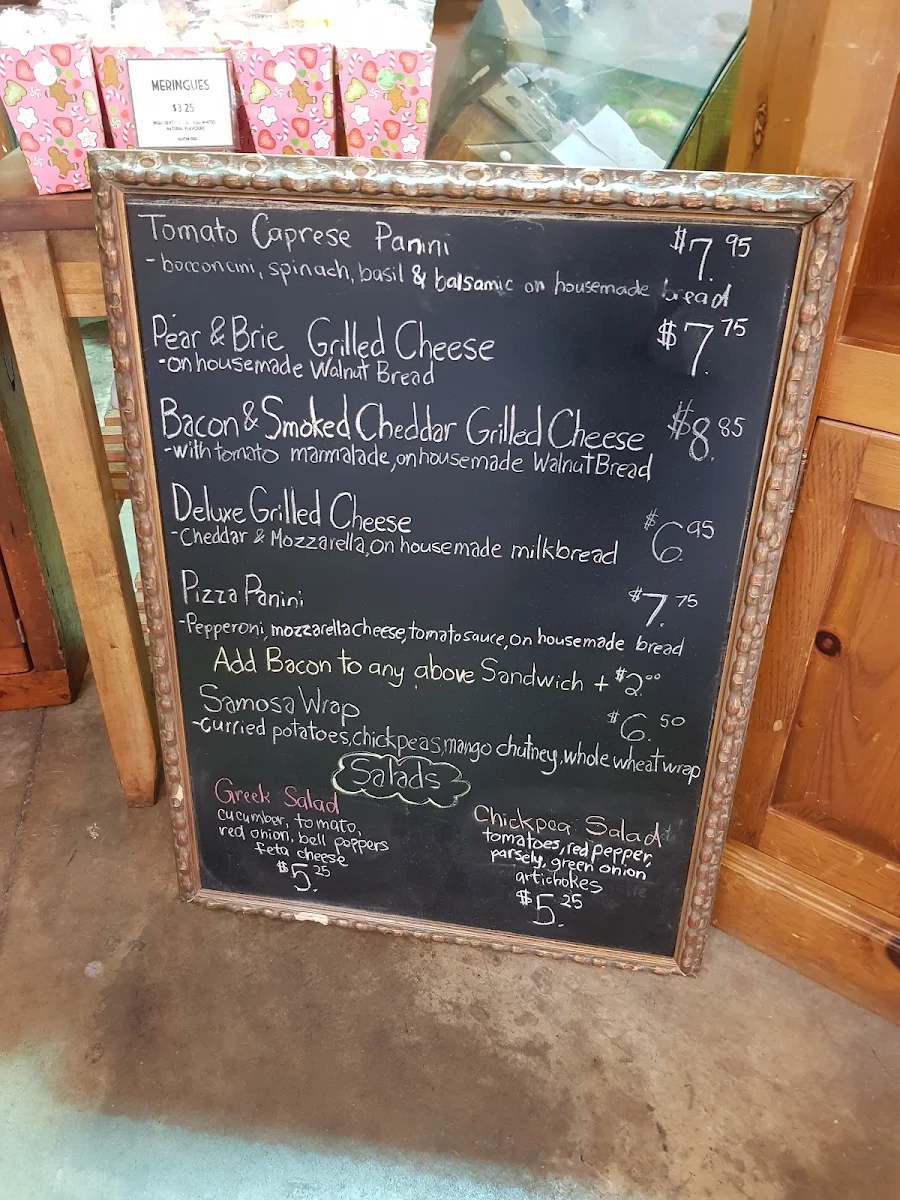 MERINGUES
$3.25
NATURAL FLAVOURS
Tomato Caprese Panini $7.95
- bocconcini, spinach, basil & balsamic on housemade bread
Pear & Brie Grilled Cheese $7.75
- on housemade Walnut Bread
Bacon & Smoked Cheddar Grilled Cheese $8.85
- with tomato marmalade, on housemade Walnut Bread
Deluxe Grilled Cheese $6.95
- Cheddar & Mozzarella, on housemade milkbread
Pizza Panini $7.75
- Pepperoni, mozzarella cheese, tomato sauce, on housemade bread
Add Bacon to any above Sandwich + $2.00
Samosa Wrap $6.50
- curried potatoes, chickpeas, mango chutney, whole wheat wrap
Salads
Greek Salad
cucumber, tomato,
red onion, bell peppers
feta cheese
$5.25
Chickpea Salad
tomatoes, red pepper,
parsely, green onion
artichokes
$5.25